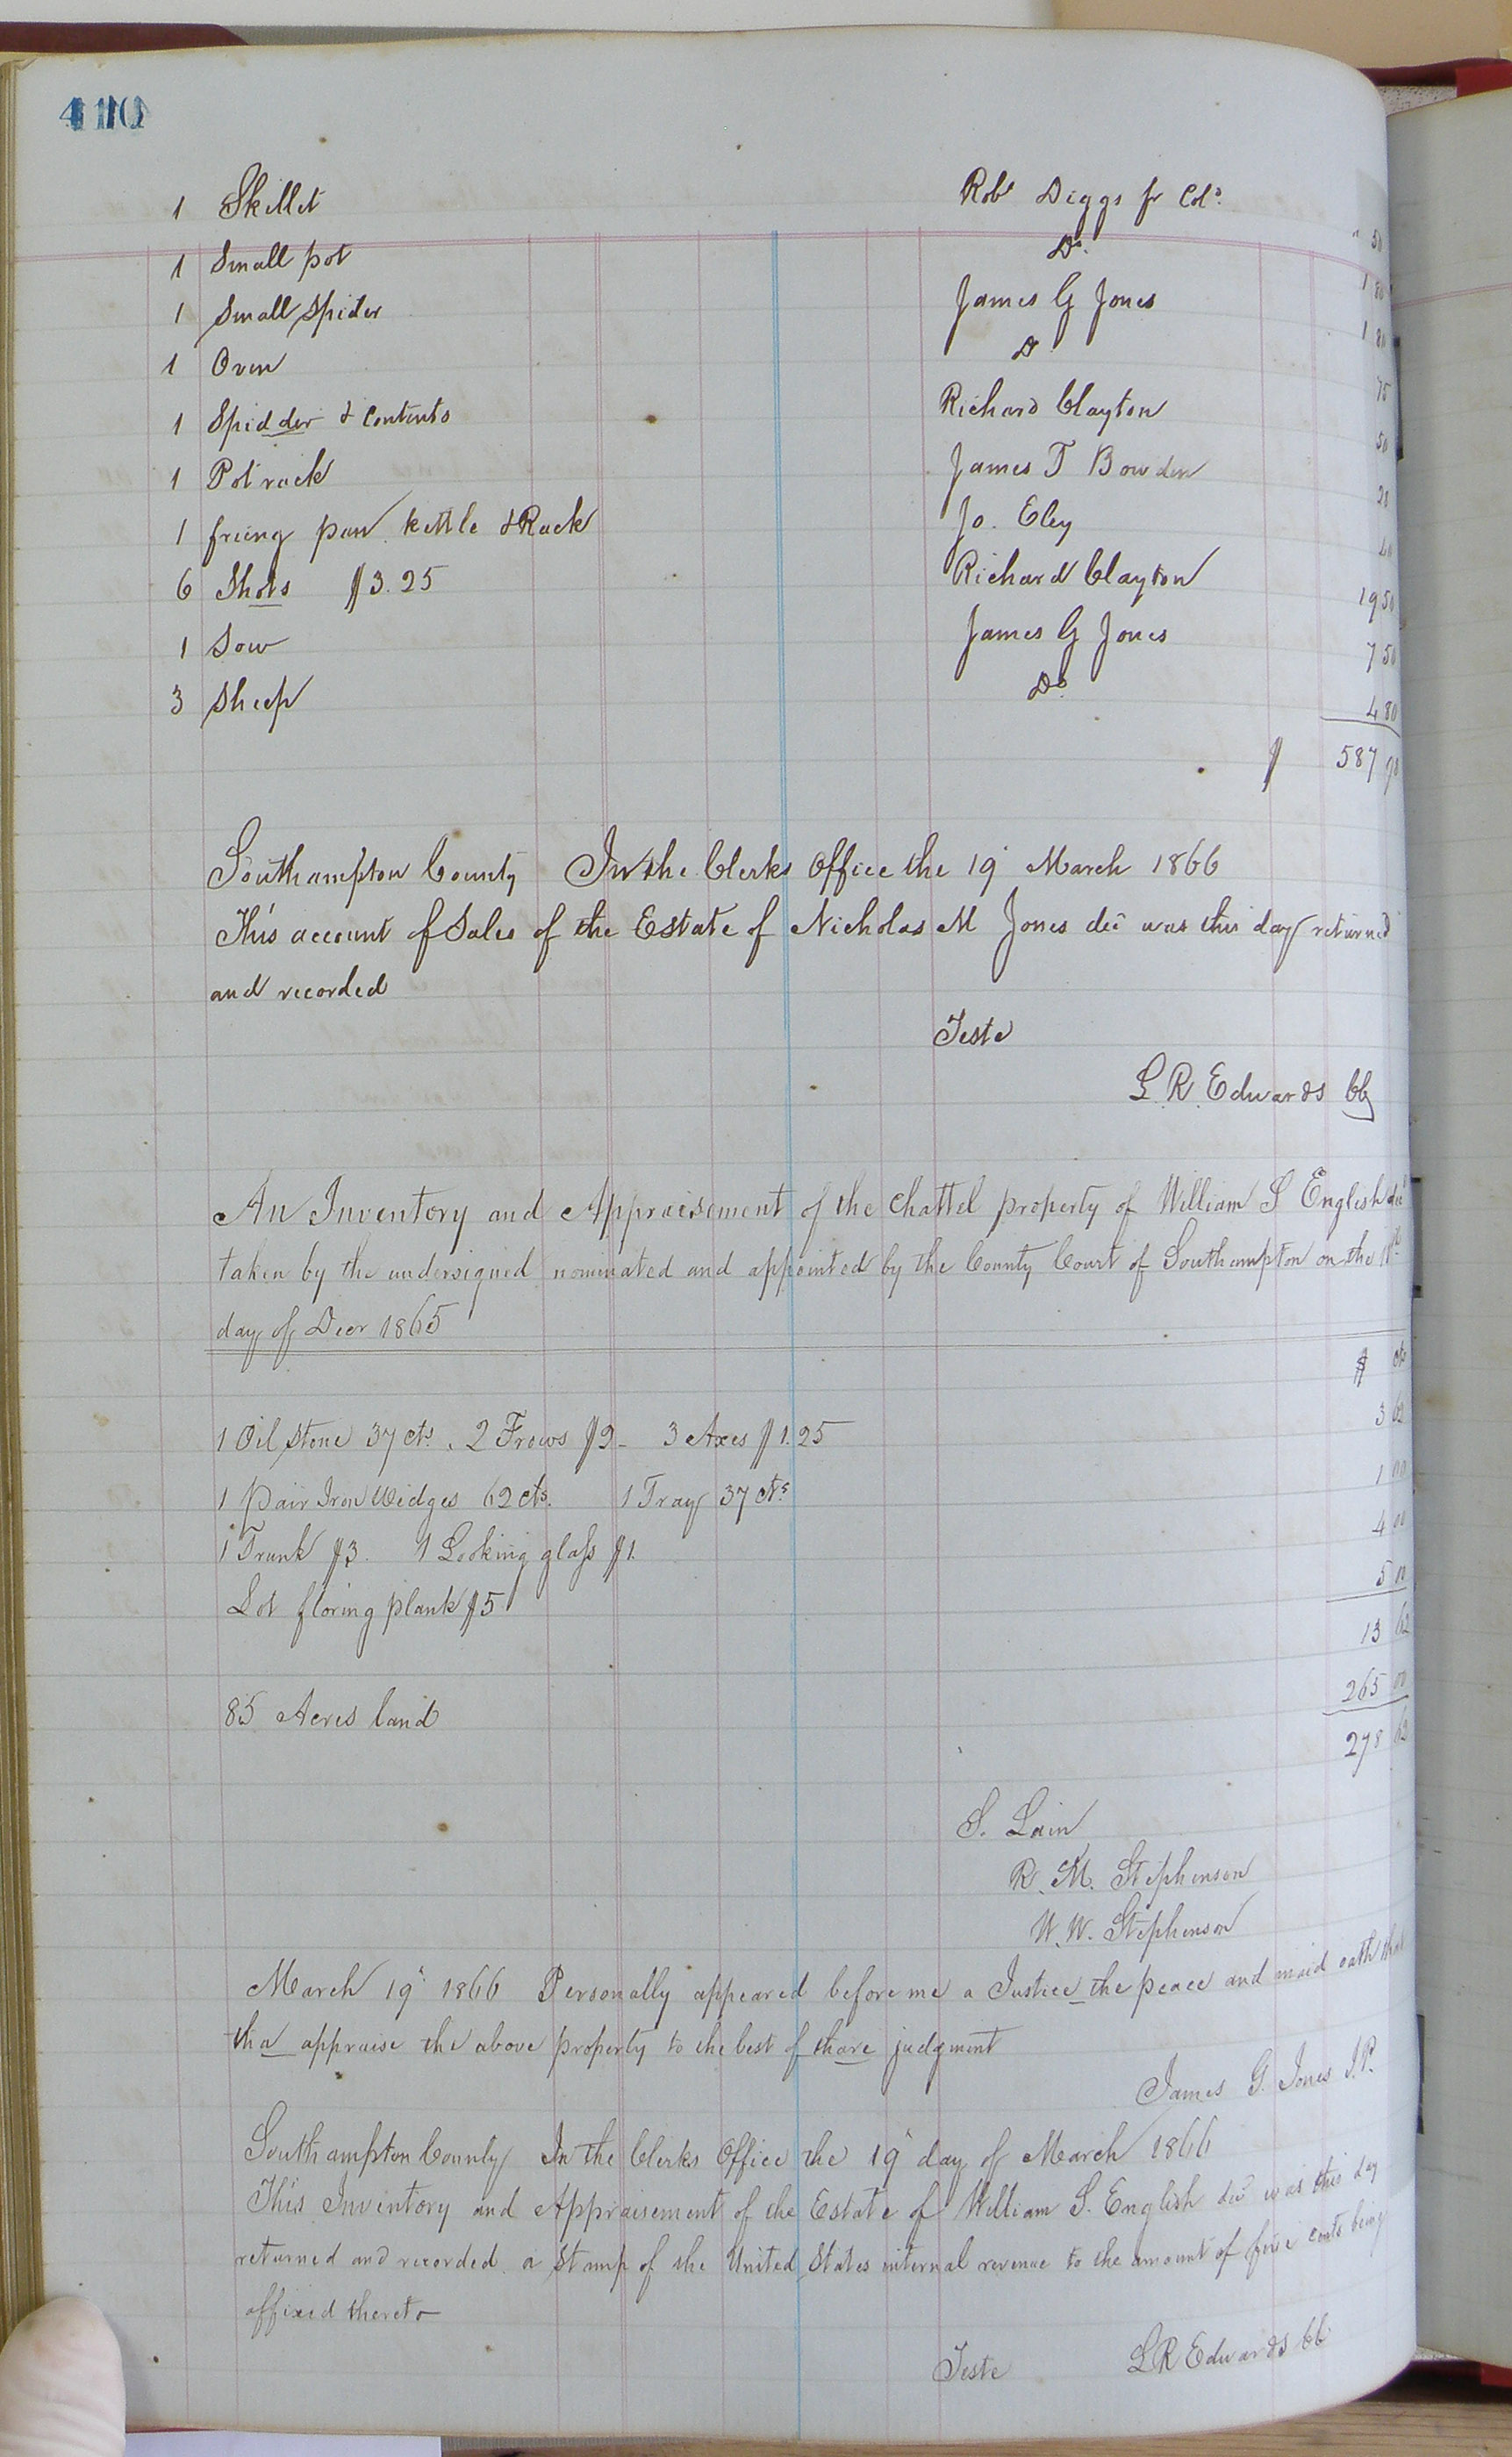 410
1 Skillet Robt Diggs fr Cold. " 50
1 Small pot Do. 1 80
1 Small Spider James G Jones 1 80
1 Oven Do 75
1 Spidder & Contents Richard Clayton 50
1 Pot rack James T Bowden 20
1 frieng pan kettle & Rack Jo. Eley
6 Shots $3.25 Richard Clayton 19 50
1 Sow James G Jones 7 50
3 Sheep Do. 4 80
$ 587
Southampton County In the Clerks Office the 19" March 1866
This account of Sales of the Estate of Nicholas M Jones decd was this day returned
and recorded
Teste
L. R. Edwards CC
An Inventory and Appraisement of the chattel property of William S English decd
taken by the undersigned nominated and appointed by the County Court of Southampton on the
day of Decr 1865
$ cts
1 Oil Stone 37 cts. 2 Frows $2 - 3 Axes $1.25 3 62
1 Pair Iron Widges 62 cts. 1 Tray 37 cts 1 00
1 Trunk $3. 1 Looking glass $1. 4 00
Lot floring plank $5 5 00
13 62
85 Acres land 265 00
278 62
S. Lain
R. M. Stephenson
W. W. Stephenson
March 19" 1866 Personally appeared before me a Justice the peace and maid oath that
tha appraise the above property to the best of thare judgment
James G. Jones J.P.
Southampton County In the Clerks Office the 19" day of March 1866
This Inventory and Appraisement of the Estate of William S. English decd was this day
returned and recorded. a Stamp of the United States internal revenue to the amount of five cents being
affixed thereto
Teste L R Edwards CC